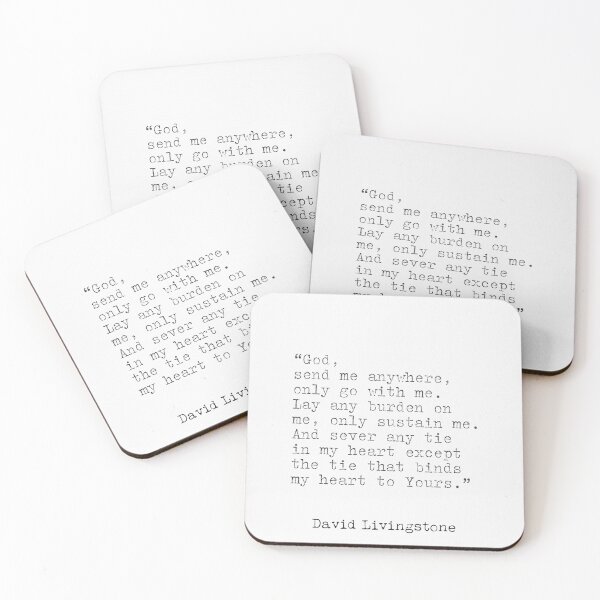 “God,
send me anywhere,
only go with me.
Lay any burden on
me, only sustain me
any tie
except
binds
Yours.
“God,
send me anywhere,
only go with me.
Lay any burden on
me, only sustain me.
And sever any tie
in my heart except
the tie that binds
my
“God,
send me anywhere,
only go with me.
Lay any burden on
me, only sustain me.
And sever any tie
in my heart
the tie that
my heart to Yours.
David
“God,
send me anywhere,
only go with me.
Lay any burden on
me, only sustain me.
And sever any tie
in my heart except
the tie that binds
my heart to Yours.”
David Livingstone